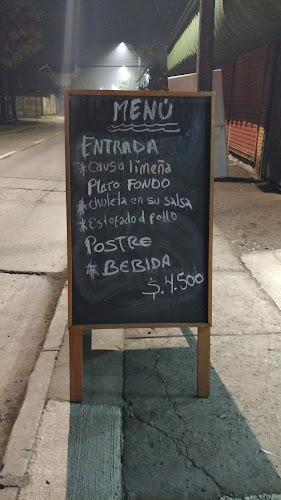 MENÚ
ENTRADA
* Causa limeña
Plato FONDO
* choleta en su salsa
* Estofado d pollo
POSTRE
* BEBIDA
$.4.500